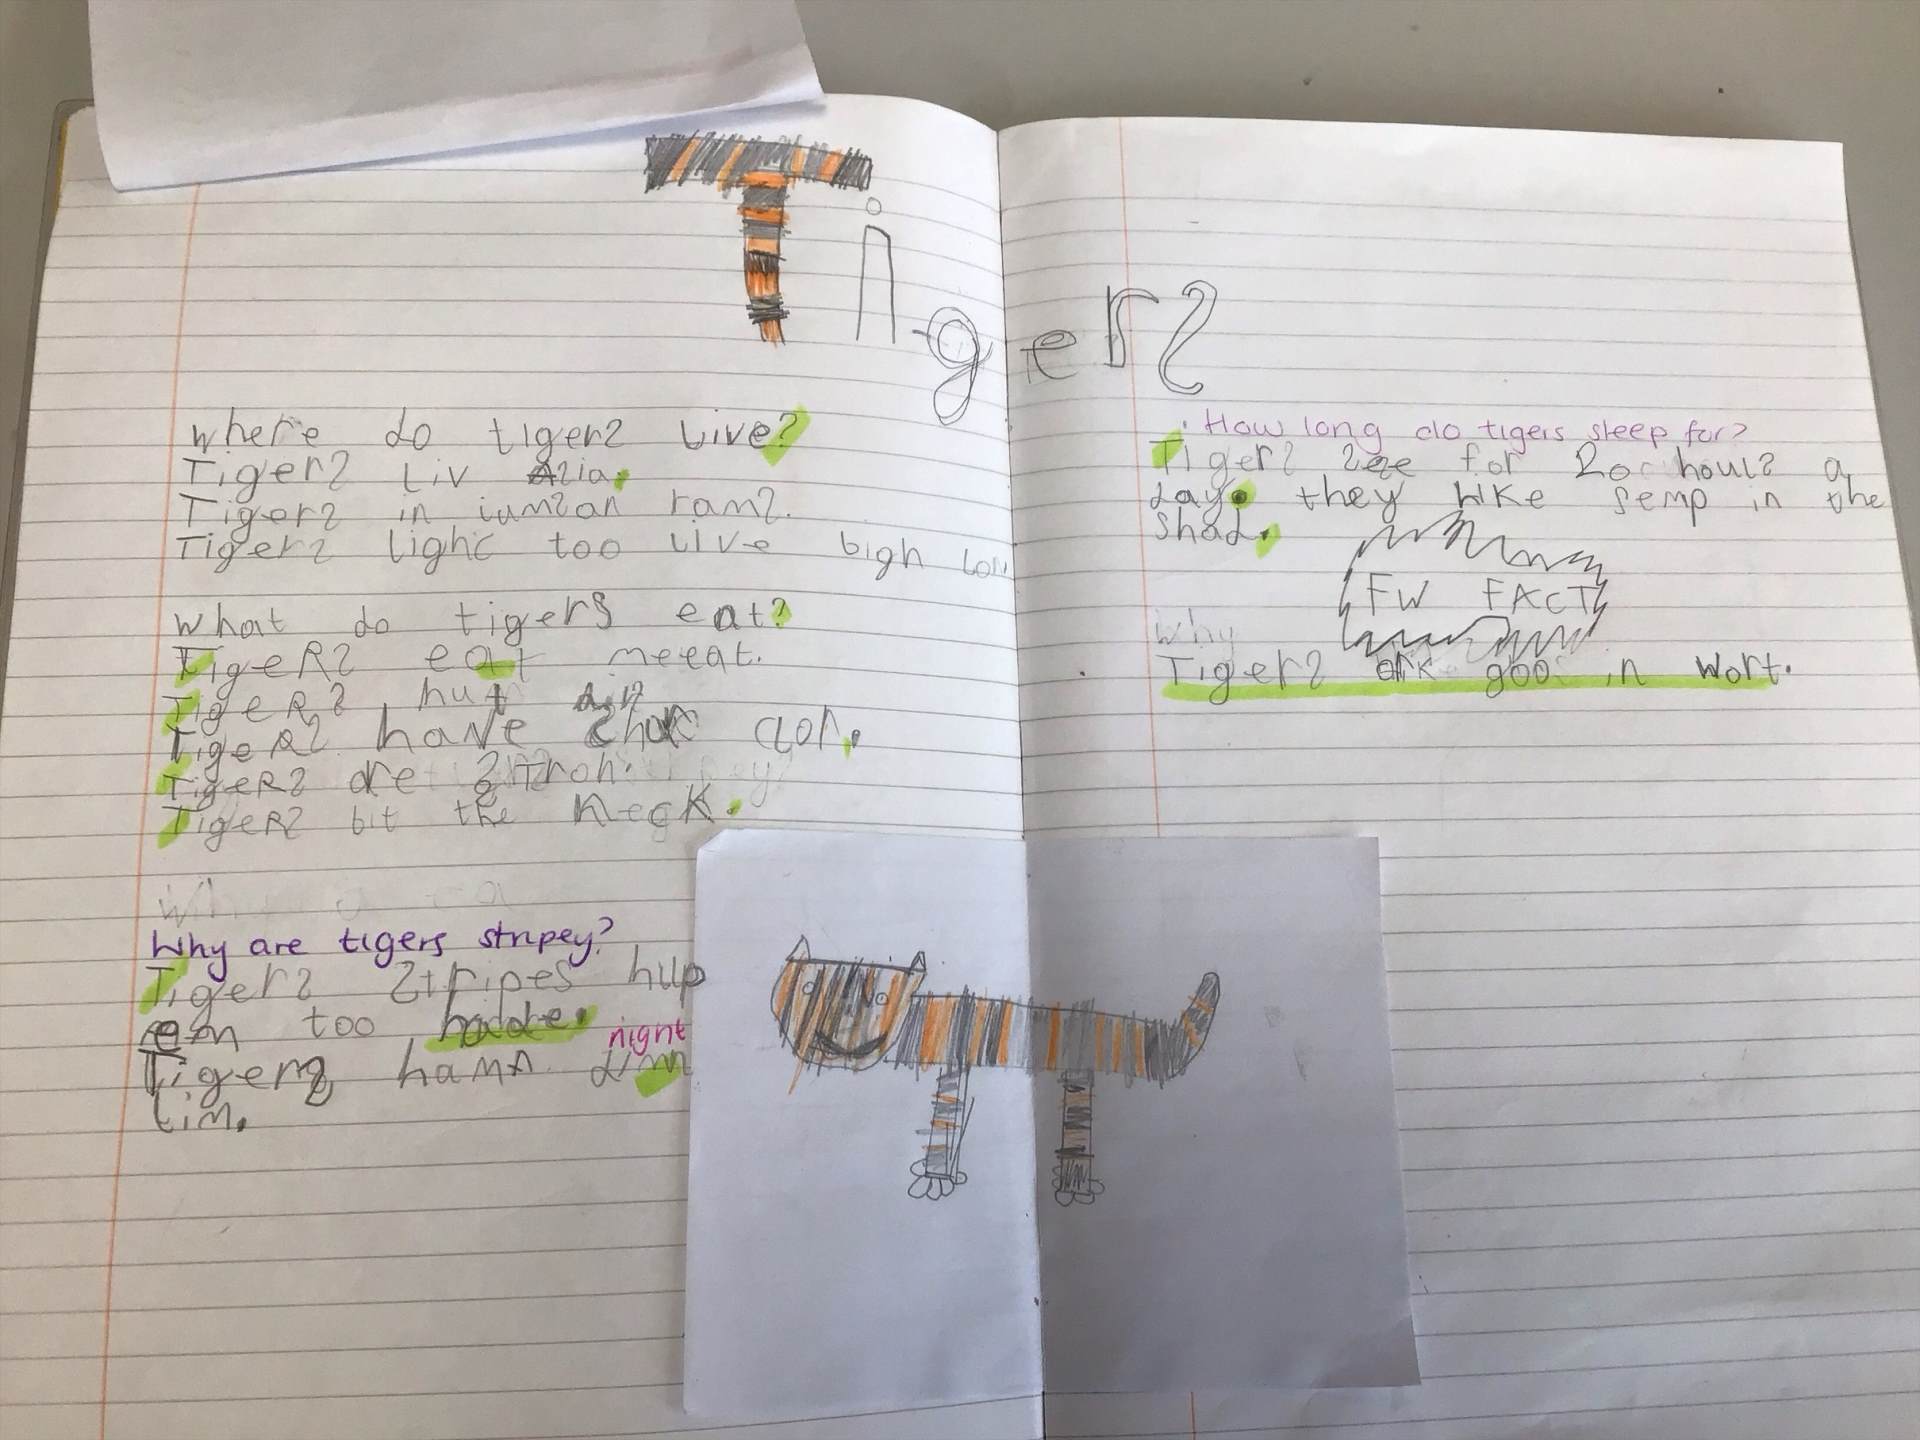 Tigers
where do tigers live?
Tigers liv Azia.
Tigers in iumsan rams.
Tigers light too live bigh
What do tigers eat?
TigeRs eat meeat.
TigeRs hut
TigeRs have clor.
TigeRs are stroh.
TigeRs bit the neck.
Why are tigers stripey?
Tigers stripes hup
em too hadde.
night
Tigers hamn
tim.
How long do tigers sleep for?
Tigers see for 20 houls a
day. they like semp in the
shad.
FW FACT
why
Tigers ark goo in wort.